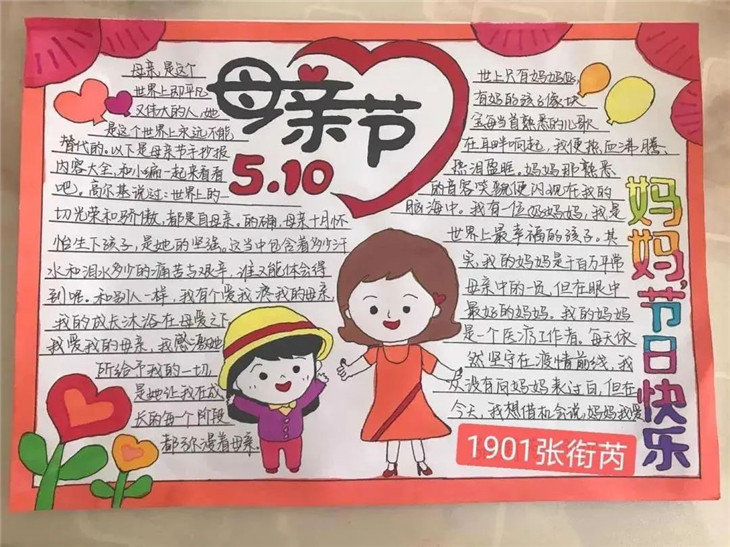 母亲节
5.10
母亲,是这个
世界上即平凡
又伟大的人,她
是这个世界上永远不能
替代的。以下是母亲节手抄报
内容大全,和小编一起来看看
吧。高尔基说过:世界上的一
切光荣和骄傲,都是自母亲。的确,母亲十月怀
怡生下孩子,是她的坚强。这当中包含着多少汗
水和泪水多少的痛苦与艰辛,谁又能体会得
到呢。和别人一样,我有个爱我疼我的母亲,
我的成长沐浴在母爱之下
我爱我的母亲,我感激她
所给予我的一切,
是她让我在成
长的每个阶段
都弥漫着母亲。
世上只有妈妈好,
有妈的孩子像块
宝每当首熟悉的儿歌
在耳畔响起,我便热血沸腾、
热泪盈眶。妈妈那熟悉
的音容笑貌便闪现在我的
脑海中。我有一位好妈妈,我是
世界上最幸福的孩子。其
实,我的妈妈是千百万平常
母亲中的一员,但在眼中
最好的妈妈。我的妈妈
是一个医疗工作者。每天依
然坚守在疫情前线,我
从没有向妈妈表过白,但在
今天,我想借机会说:妈妈我爱
妈妈,节日快乐
1901张衔芮